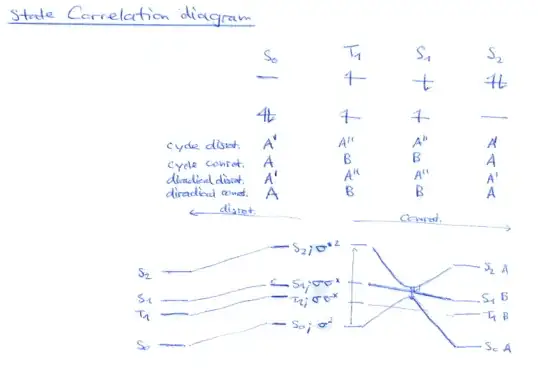 State Correlation diagram
S₀ T₁ S₁ S₂
cyclo disrot. A' A'' A'' A'
cyclo conrot. A B B A
diradical disrot. A' A'' A'' A'
diradical conrot. A B B A
disrot. conrot.
S₂ S₂; σ*² S₂ A
S₁ S₁; σσ* S₁ B
T₁ T₁; σσ* T₁ B
S₀ S₀; σ² S₀ A